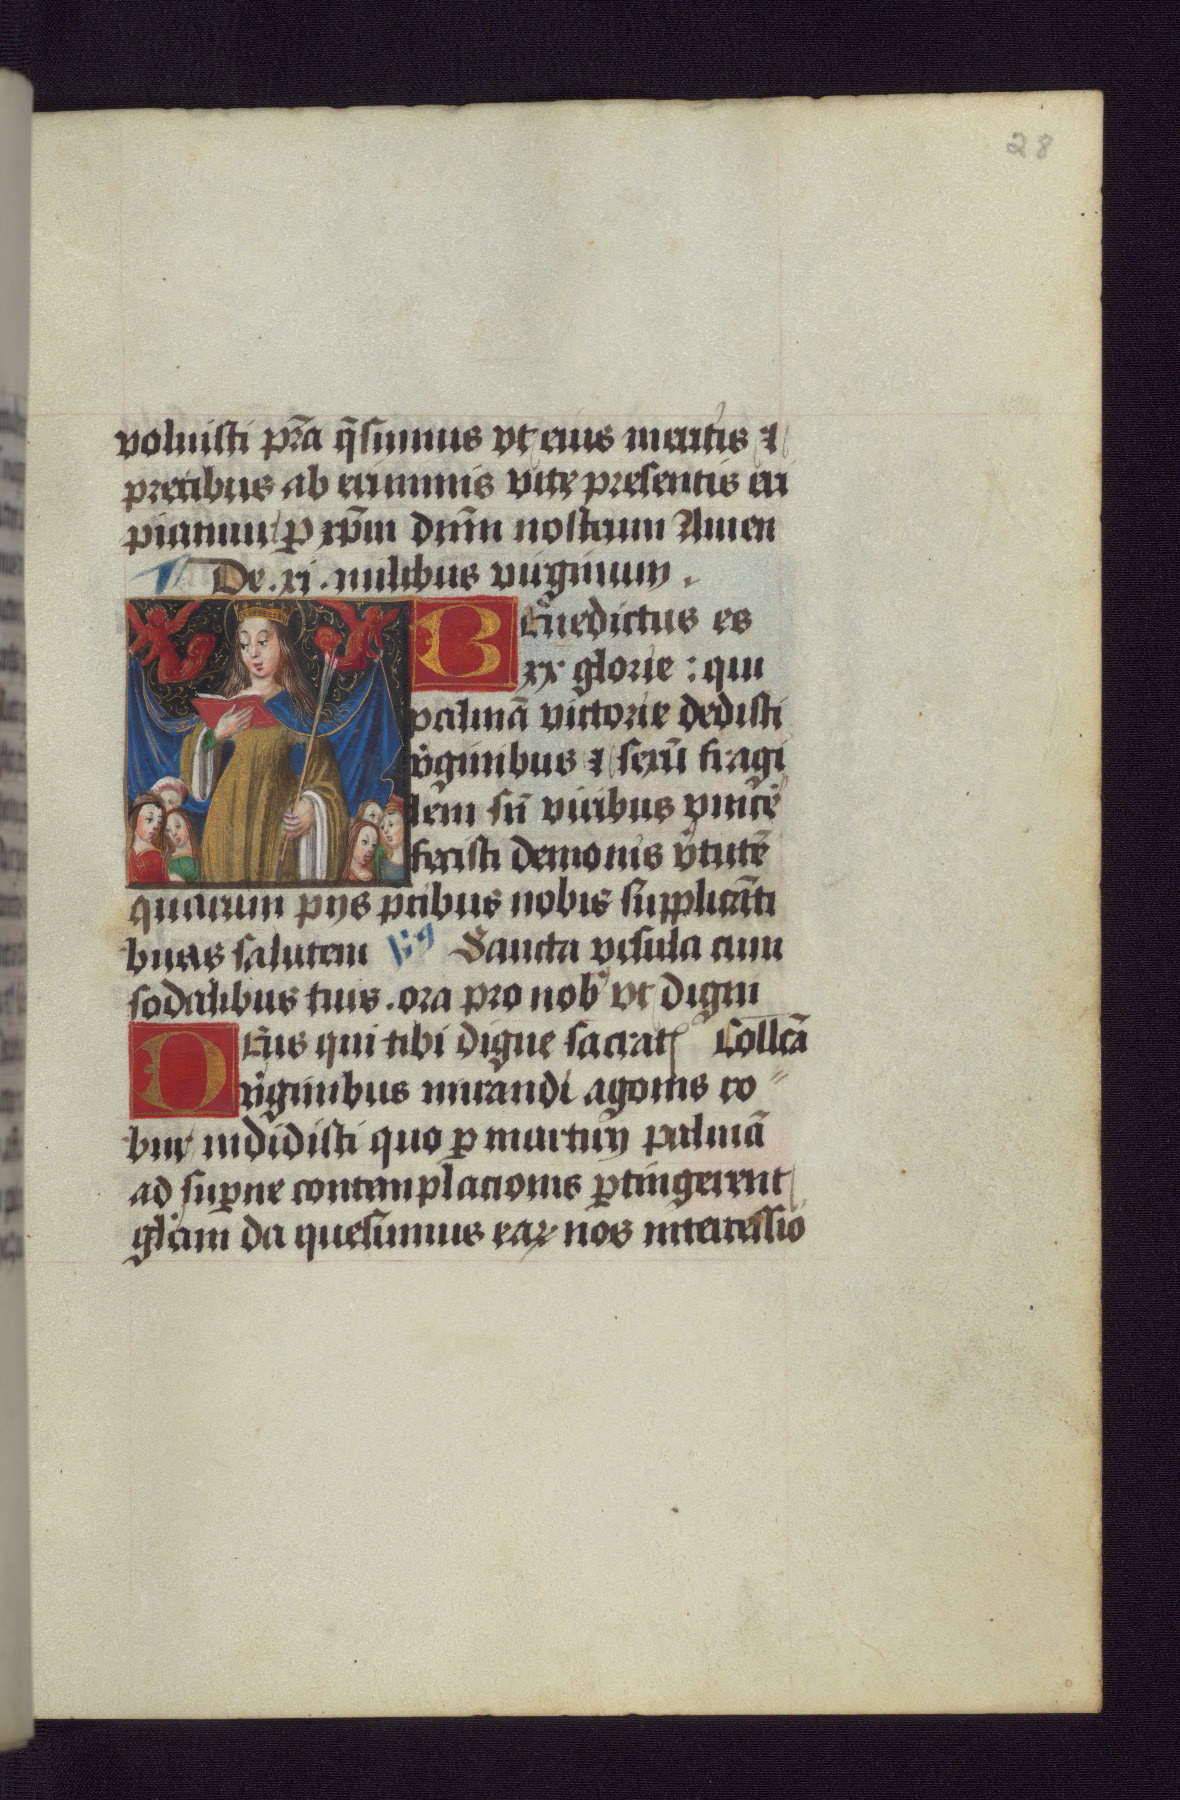 28
voluisti pr̄a q̄sumus vt eius meritis ⁊
precibus ab erumnis vite presentis eri
piamur p xp̄m dn̄m nostrum Amen
De .xi. milibus virginum .
Benedictus es
rex glorie : qui
palmā victorie dedisti
v̓ginibus ⁊ sexū fragi
lem sū viribus vincē
fecisti demonis v̓tutē
quarum pijs p̄cibus nobis supplicāti
bus salutem Sancta vrsula cum
sodalibus tuis . ora pro nob̓ vt digni
Deus qui tibi digne sacrat Collcā
v̓ginibus mirandi agonis ro
bur indidisti quo p martirij palmā
ad sup̄ne contemplacionis p̄tingerent
gl̓iam da quesumus eaꝝ nos intercessio